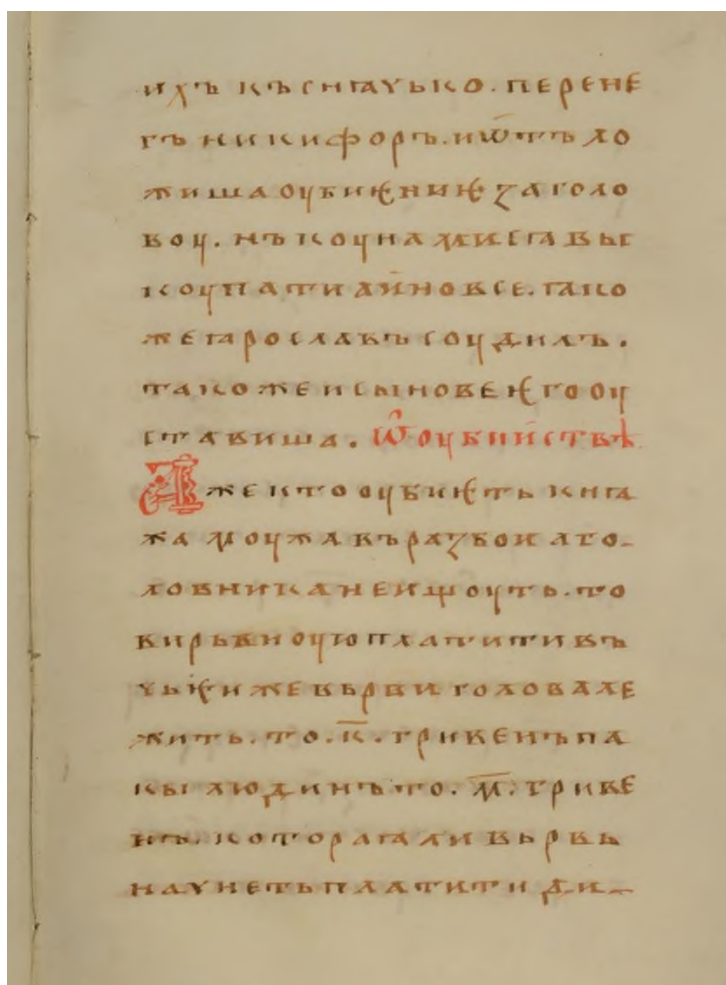 ихъ къснѧчько. перене
гъ никифоръ. и ѿтъло
жиша оубиѥниѥ за голо
воу. нъ коунами сѧ вы
коупати а ино все. ꙗко
же ꙗрославъ соудилъ.
такоже и сынове ѥго оу
ставиша. Ѡ оубийствѣ
Аже кто оубиѥть кнѧ
жа моужа въ разбои а го
ловника не ищоуть. то
вирьвноую платити въ
чьѥи же вьрви голова ле
жить. то. п. гривенъ па
кы людинъ то. м. гриве
нъ. котораꙗ ли вьрвь
начнеть платити ди